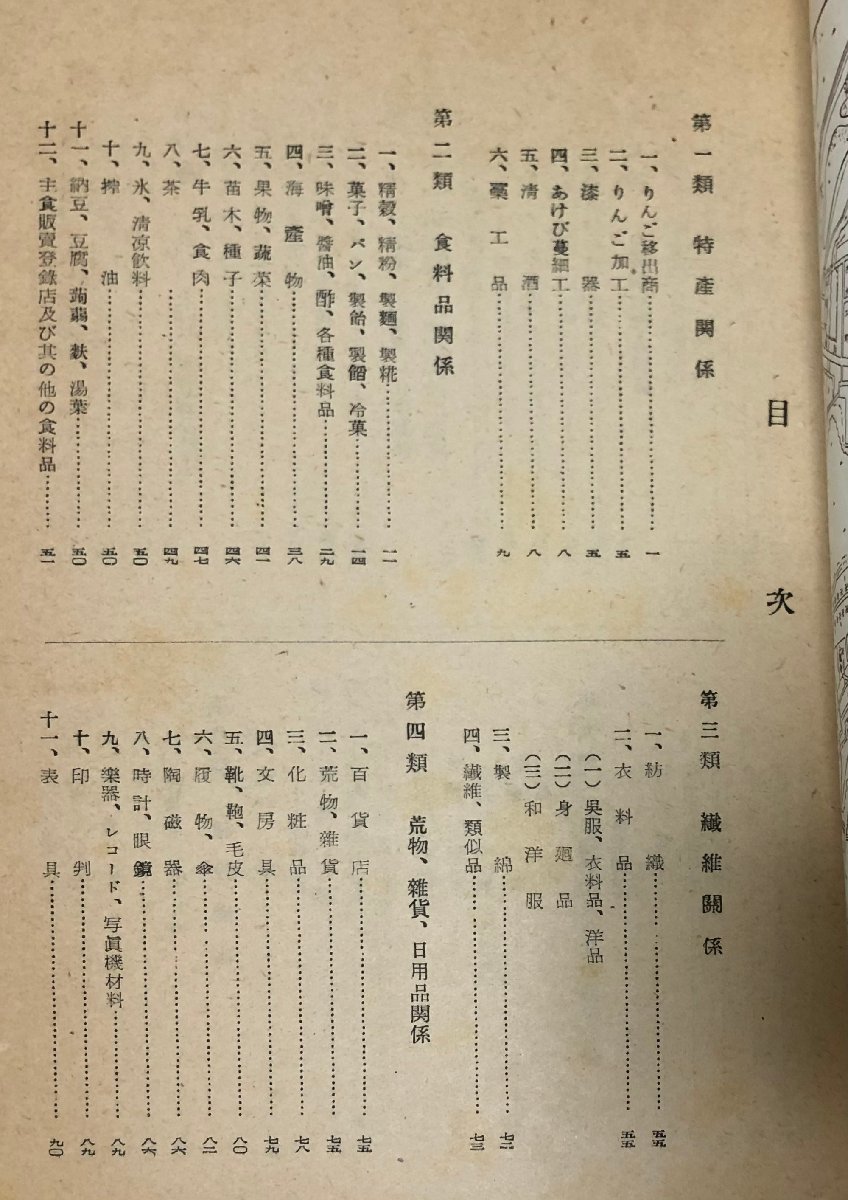 目次
第一類 特産関係
一、りんご移出商…一
二、りんご加工…五
三、漆器…五
四、あけび蔓細工…八
五、清酒…八
六、藁工品…九
第二類 食料品関係
一、精穀、精粉、製麺、製糀…一一
二、菓子、パン、製飴、製餡、冷菓…一四
三、味噌、醤油、酢、各種食料品…二九
四、海産物…三八
五、果物、蔬菜…四一
六、苗木、種子…四六
七、牛乳、食肉…四七
八、茶…四九
九、氷、清凉飲料…五〇
十、搾油…五〇
十一、納豆、豆腐、蒟蒻、麩、湯葉…五〇
十二、主食販賣登錄店及び其の他の食料品…五一
第三類 纎維關係
一、紡織…五五
二、衣料品…五五
(一)呉服、衣料品、洋品
(二)身廻品
(三)和洋服
三、製綿…七二
四、纎維、類似品…七三
第四類 荒物、雜貨、日用品関係
一、百貨店…七五
二、荒物、雜貨…七五
三、化粧品…七八
四、文房具…七九
五、靴、鞄、毛皮…八〇
六、履物、傘…八二
七、陶磁器…八六
八、時計、眼鏡…八六
九、樂器、レコード、写眞機材料…八九
十、印判…八九
十一、表具…九〇